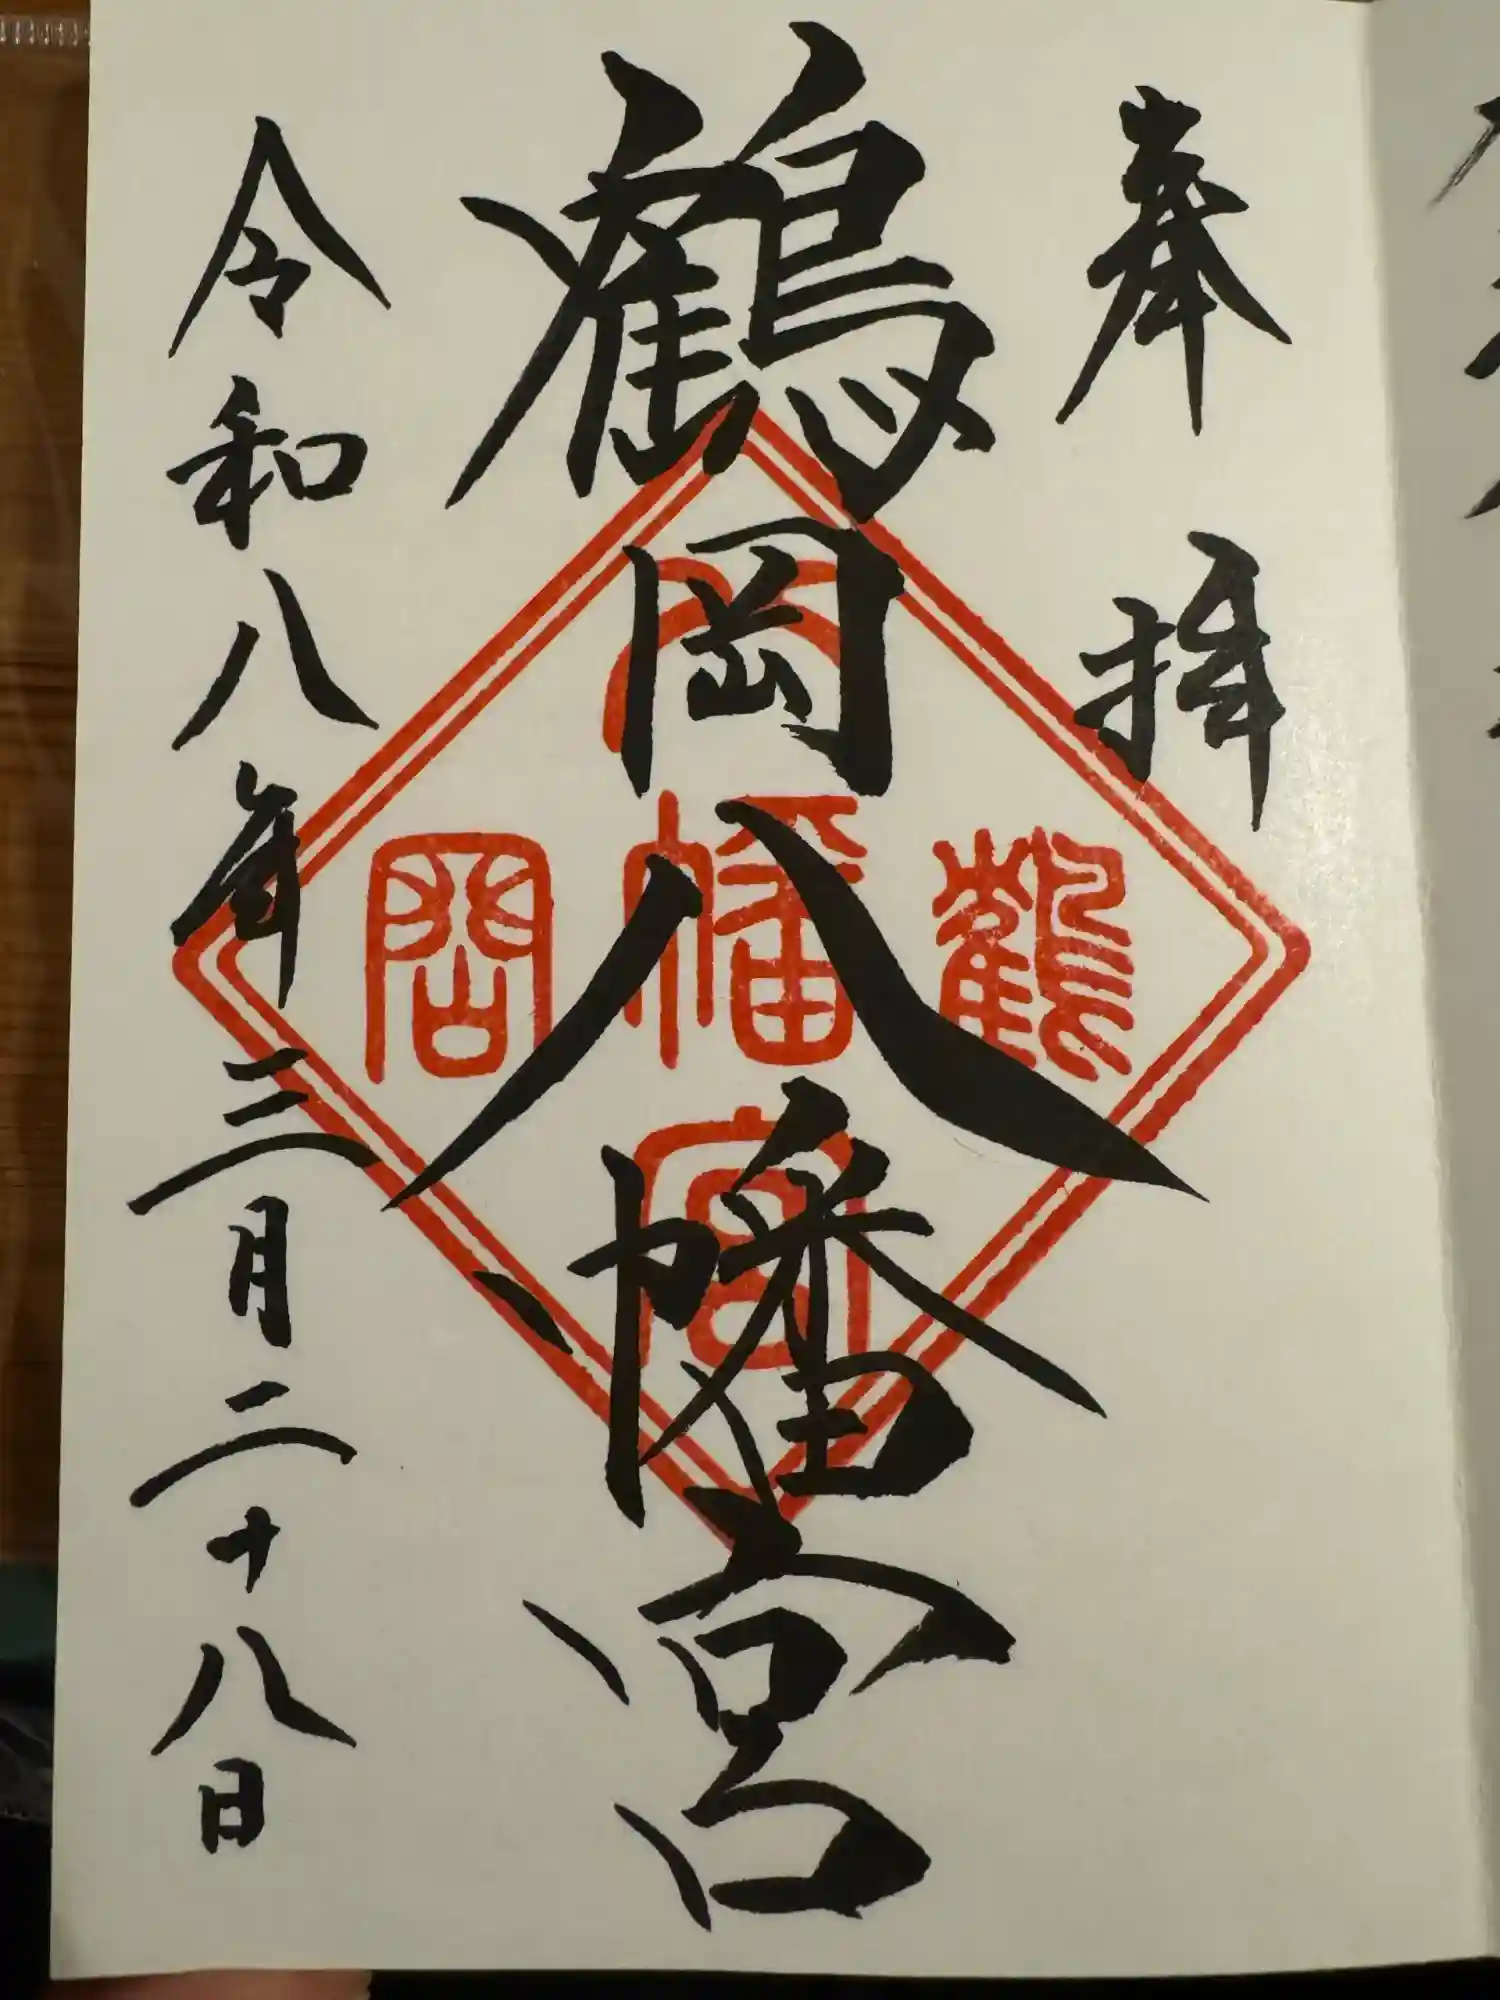 奉拝
鶴岡八幡宮
令和八年三月二十八日
八
鶴幡岡
宮